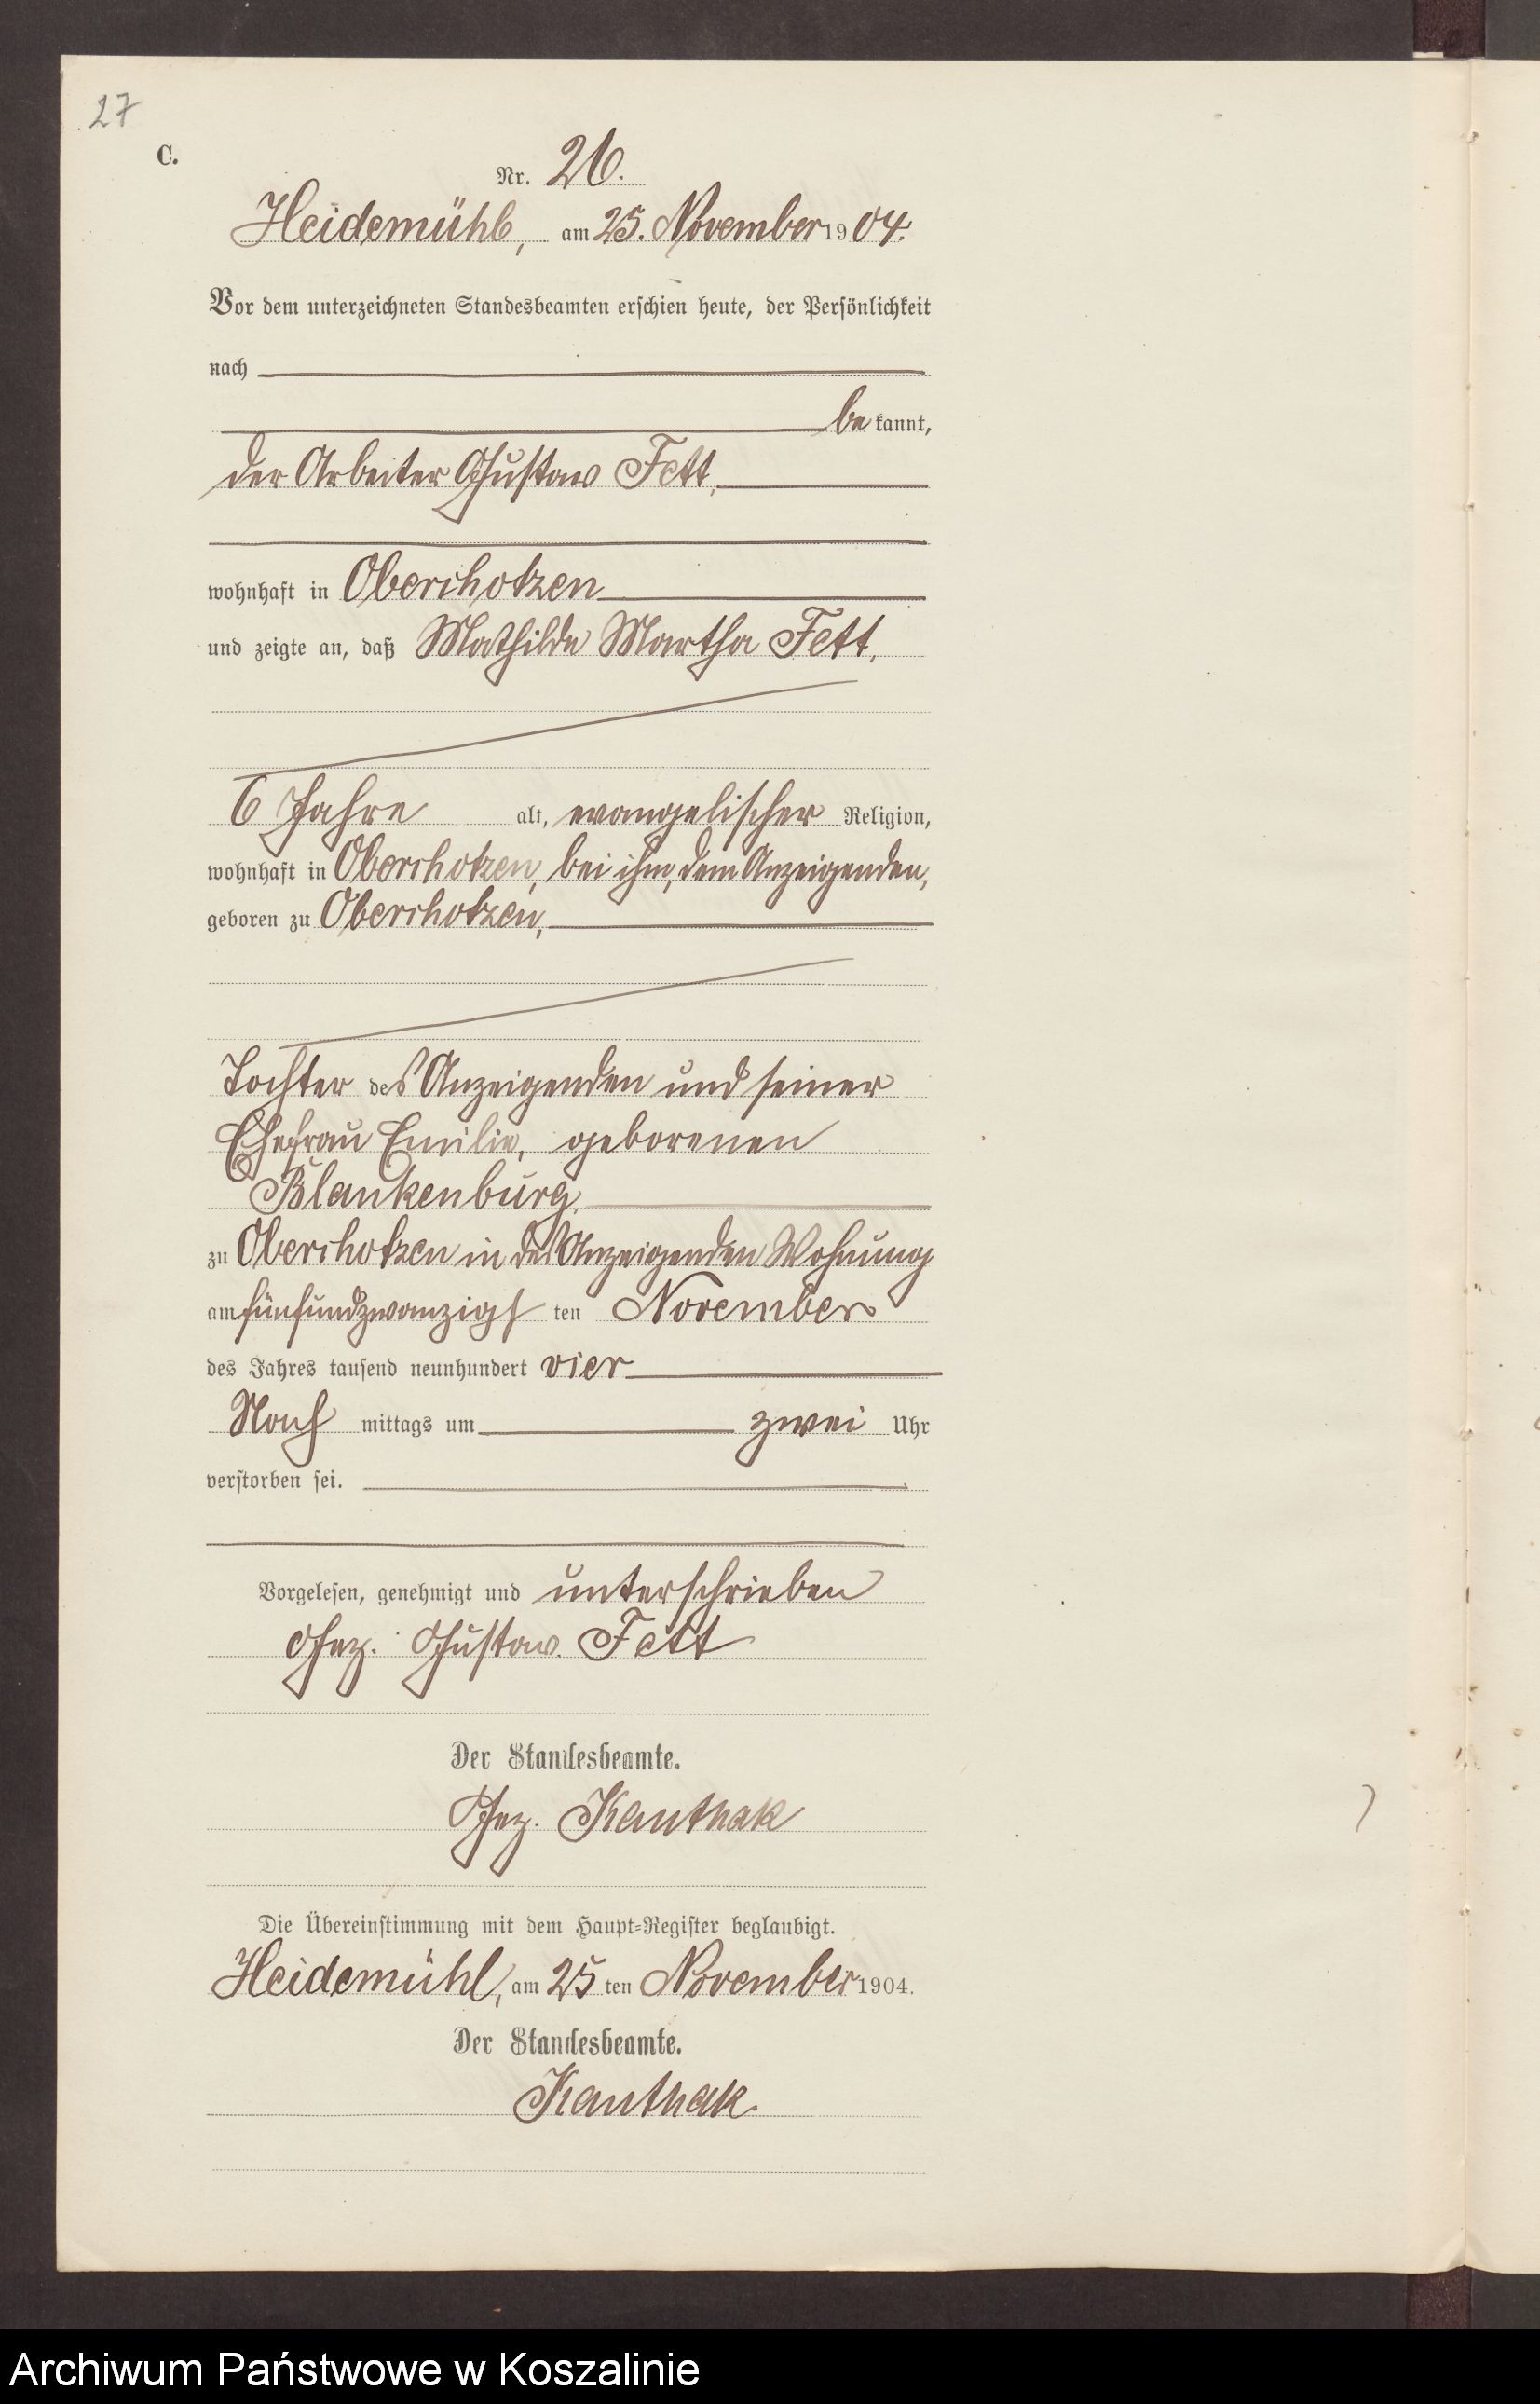 27
C.
Nr. 26.
Heidemühl, am 25. November 1904.
Vor dem unterzeichneten Standesbeamten erschien heute, der Persönlichkeit
nach
bekannt,
der Arbeiter Gustav Fett,
wohnhaft in Oberchotzen
und zeigte an, daß Mathilde Martha Fett,
6 Jahre alt, evangelischer Religion,
wohnhaft in Oberchotzen, bei ihm, dem Anzeigenden,
geboren zu Oberchotzen,
Tochter des Anzeigenden und seiner
Ehefrau Emilie, geborenen
Blankenburg,
zu Oberchotzen in des Anzeigenden Wohnung
am fünfundzwanzigsten November
des Jahres tausend neunhundert vier
Nachmittags um zwei Uhr
verstorben sei.
Vorgelesen, genehmigt und unterschrieben
Gez. Gustav Fett
Der Standesbeamte.
Gez. Kanthak
Die Übereinstimmung mit dem Haupt-Register beglaubigt.
Heidemühl, am 25ten November 1904.
Der Standesbeamte.
Kanthak.
Archiwum Państwowe w Koszalinie